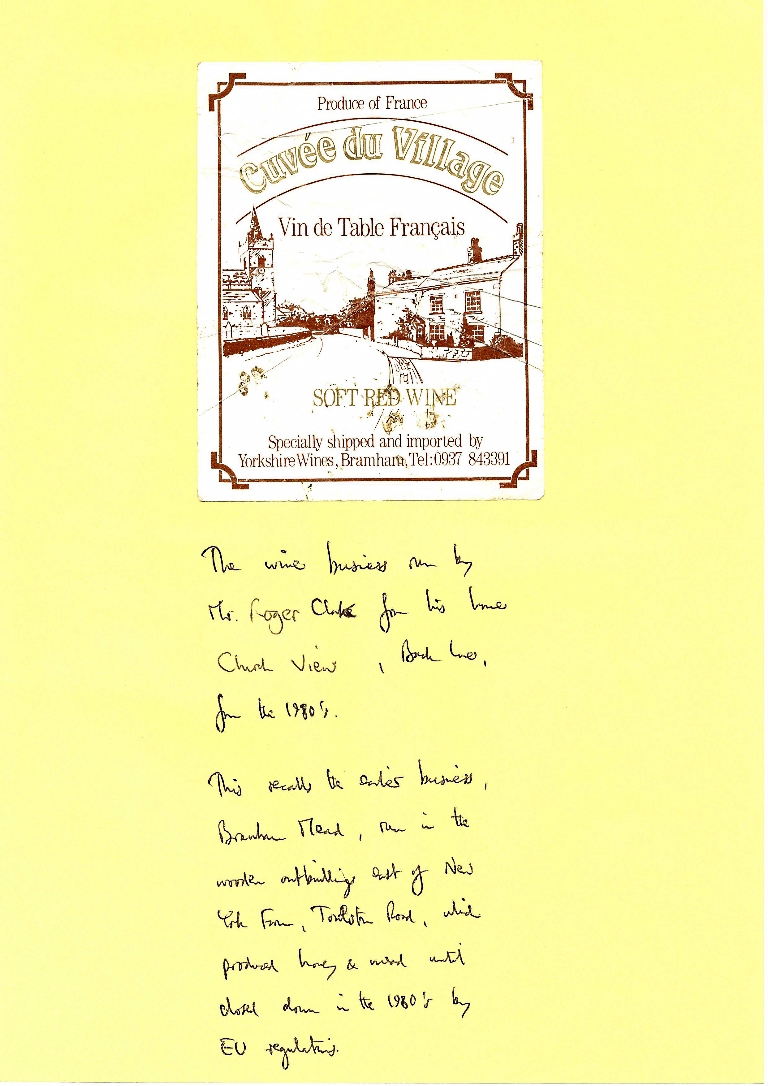 Produce of France
Cuvée du Village
Vin de Table Français
SOFT RED WINE
Specially shipped and imported by
Yorkshire Wines, Bramham, Tel: 0937 843391
The wine business run by
Mr. Roger Clarke from his home
Church View, Back Lane,
from the 1980's.
This recalls the earlier business,
Bramham Mead, run in the
wooden outbuildings east of New
York Farm, Toulston Road, which
produced honey & mead until
closed down in the 1980's by
EU regulations.